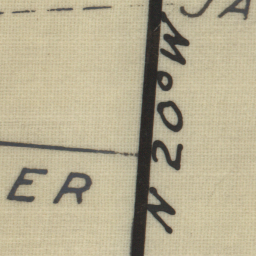 JA
N 20° W
ER